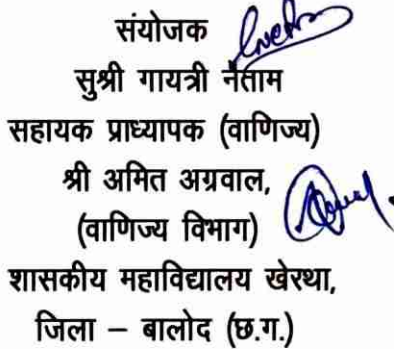 संयोजक
सुश्री गायत्री नेताम
सहायक प्राध्यापक (वाणिज्य)
श्री अमित अग्रवाल,
(वाणिज्य विभाग)
शासकीय महाविद्यालय खेरथा,
जिला – बालोद (छ.ग.)